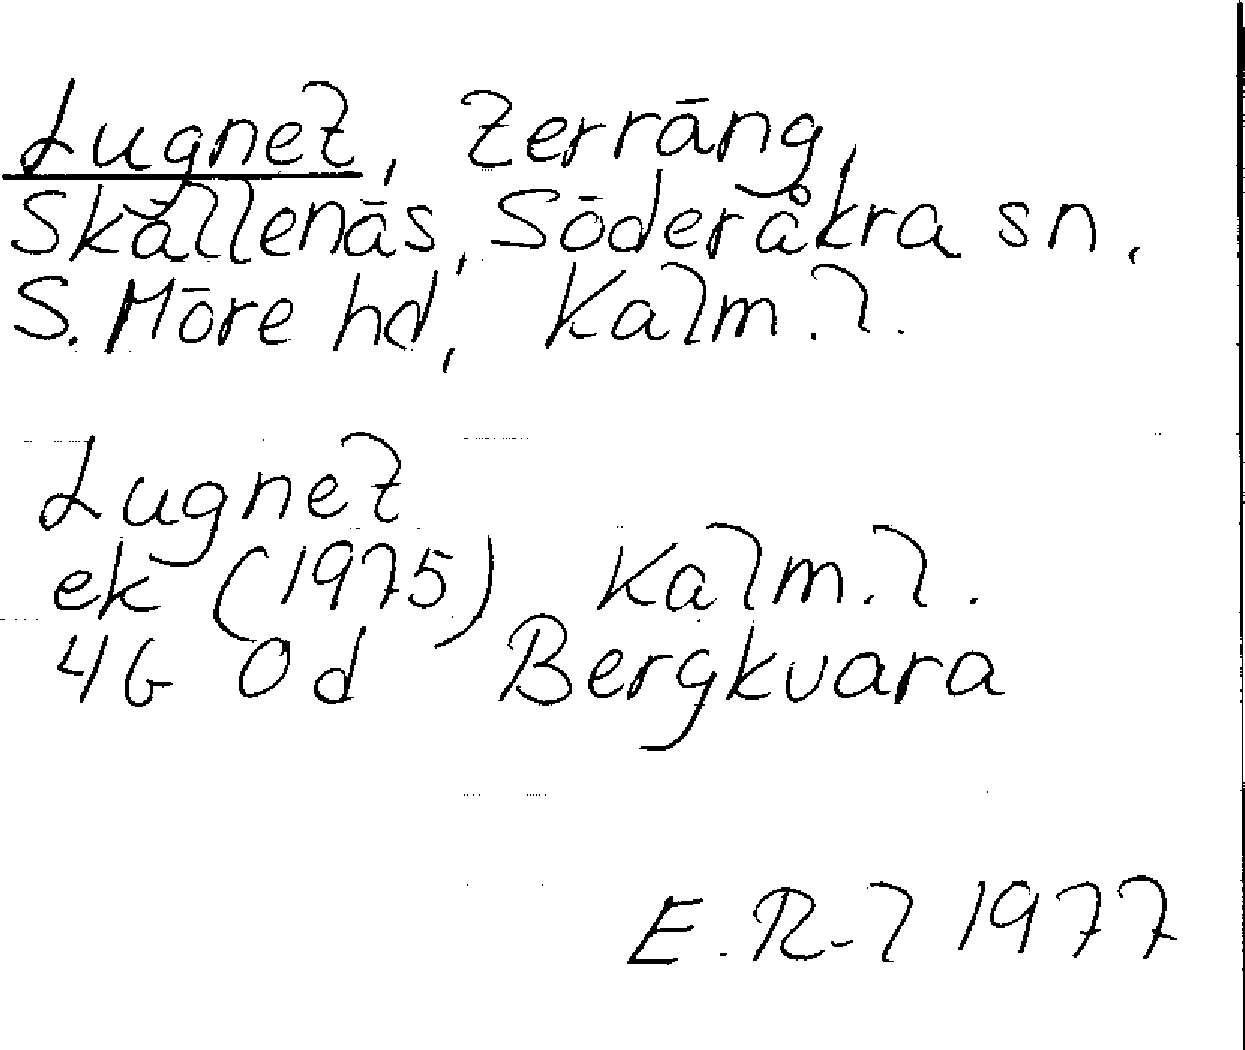 Lugnet, terräng,
Skällenäs, Söderåkra sn.
S. Möre hd, Kalm. l.
Lugnet
ek (1975) Kalm. l.
4G 0d Bergkvara
E. R-l 1977